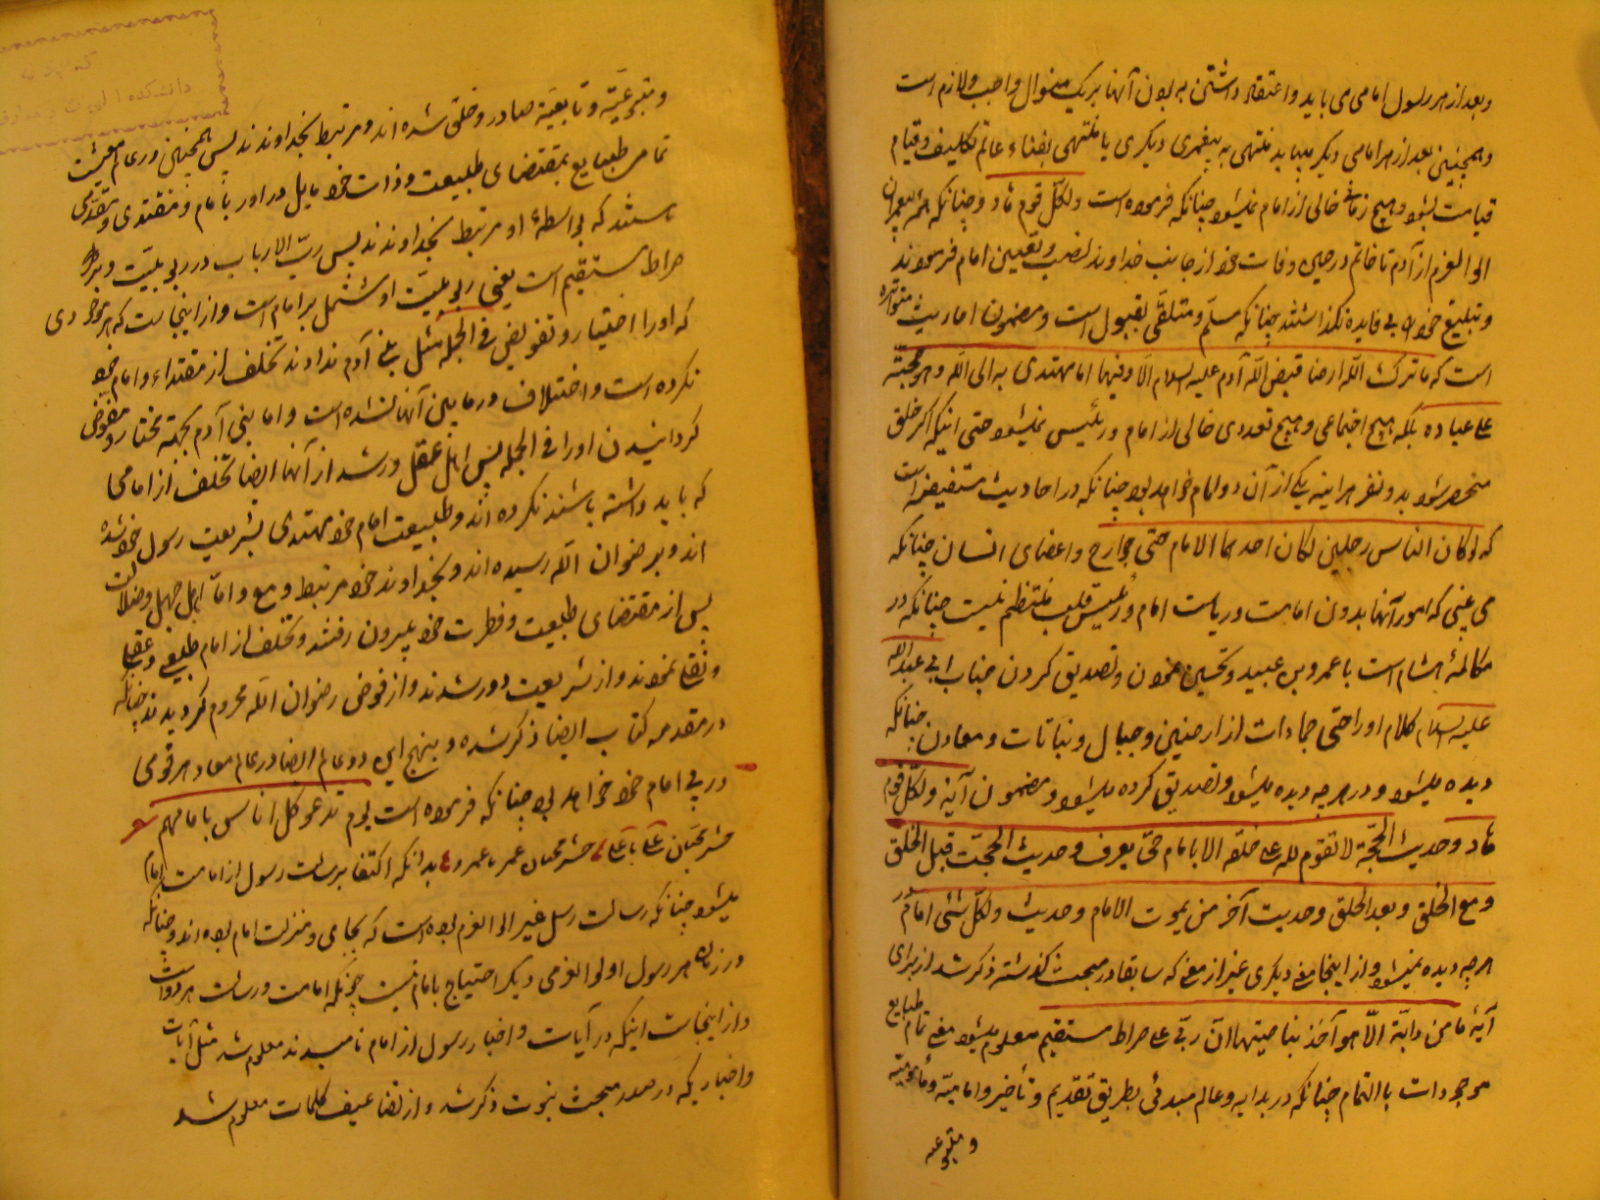 و بعد از هر رسول امامی می باید و اعتقاد داشتن به بودن آنها بر یک منوال واجب و لازم است
و همچنین بعد از هر امامی دیگر بیاید منتهی به پیغمبری دیگری یا منتهی بفناء عالم تکلیف و قیام
قیامت بشود و هیچ زمانی خالی از امام نمیشود چنانکه فرموده است ولکل قوم هاد و چنانکه همه پیغمبران
اولو العزم از آدم تا خاتم در حین وفات خود از جانب خداوند نصب و تعیین امام فرمودند
و تبلیغ خود را بی فایده نگذاشتند چنانکه مسلم و متلقی بقبول است و مضمون احادیث متواتره
است که ما ترک الله ارضا قبض الله آدم علیه السلام الا وفیها امام یهتدی به الی الله و هو حجته
علی عباده بلکه هیچ اجتماعی و هیچ تعددی خالی از امام و رئیس نمیشود حتی اینکه اگر خلق
منحصر شود بدو نفر هرآینه یکی از آن دو امام خواهد بود چنانکه در احادیث مستفیضه است
که لو کان الناس رجلین لکان احدهما الامام حتی جوارح و اعضای انسان چنانکه
می بینی که امور آنها بدون امامت و ریاست امام و رئیس قلب منتظم نیست چنانکه در
مکالمهٔ هشام است با عمرو بن عبید و تحسین نمودن و تصدیق کردن جناب ابی عبد الله
علیه السلام کلام او را حتی جمادات از ارضین و جبال و نباتات و معادن چنانکه
دیده میشود و در هر چه دیده میشود تصدیق کرده میشود و مضمون آیه ولکل قوم
هاد و حدیث الحجة لا تقوم لله علی خلقه الا بامام حتی یعرف و حدیث الحجت قبل الخلق
و مع الخلق و بعد الخلق و حدیث آخر من یموت الامام و حدیث ولکل شئ امام در
هر چه دیده میشود و از اینجا معنی دیگری غیر از معنی که سابقا در مبحث گذشته ذکر شد از برای
آیهٔ ما من دابة الا هو آخذ بناصیتها ان ربی علی صراط مستقیم معلوم میشود یعنی تمام طبایع
موجودات با التمام چنانکه در بدایه و عالم مبدئی بطریق تقدیم و تأخیر و امامیّه و مأمومیّه
و متبوعیه
و متبوعیّه و تابعیّه صادر و خلق شده اند و مرتبط بخداوندند پس همچنین در عالم معیشت
تمامی طبایع بمقتضای طبیعت و ذات خود مایل در اور با امام و مقتدی و مقتدای
هستند که بواسطهٔ او مرتبط بخداوندند پس ربّ الارباب در ربوبیّت و بر
صراط مستقیم است یعنی ربوبیّت او مشتمل بر امام است و از اینجاست که هر موجودی
که او را اختیار و تفویض فی الجمله مثل بنی آدم ندادند تخلف از مقتداء و امام خود
نکرده است و اختلاف در مابین آنها نشده است و اما بنی آدم بجهة مختار و مفوض
گردانیدن او را فی الجمله پس اهل عقل و رشد از آنها ایضا تخلف از امامی
که باید داشته باشند نکرده اند و طبیعت امام خود مهتدی بشریعت رسول خود شده
اند و برضوان الله رسیده اند و بخداوند خود مرتبط و مع و اما اهل جهل و ضلالت
پس از مقتضای طبیعت و فطرت خود بیرون رفتند و تخلف از امام طبیعی و عقلی
و نقلی نمودند و از شریعت دور شدند و از فوض رضوان الله محروم گردیدند چنانکه
در مقدمه کتاب ایضا ذکر شده و بنهج این دو عالم ایضا در عالم معاد هر قومی
در پی امام خود خواهد بود چنانکه فرموده است یوم ندعو کل اناس بامامهم
حشر محبان علی با علی حشر محبان عمر با عمر و بدانکه اکتفا برسالت رسول از امامت
میشود چنانکه رسالت رسل غیر اولی العزم بوده است که بجای و منزلت امام بوده اند و چنانکه
در زمان هر رسول اولو العزمی دیگر احتیاج بامام نیست چونکه امامت و رسالت هر دو است
و از اینجاست اینکه در آیات و اخبار رسول از امام نامیدند معلوم شد مثل آیات
و اخباریکه در صدر مبحث نبوت ذکر شد و از تضاعیف کلمات معلوم شد